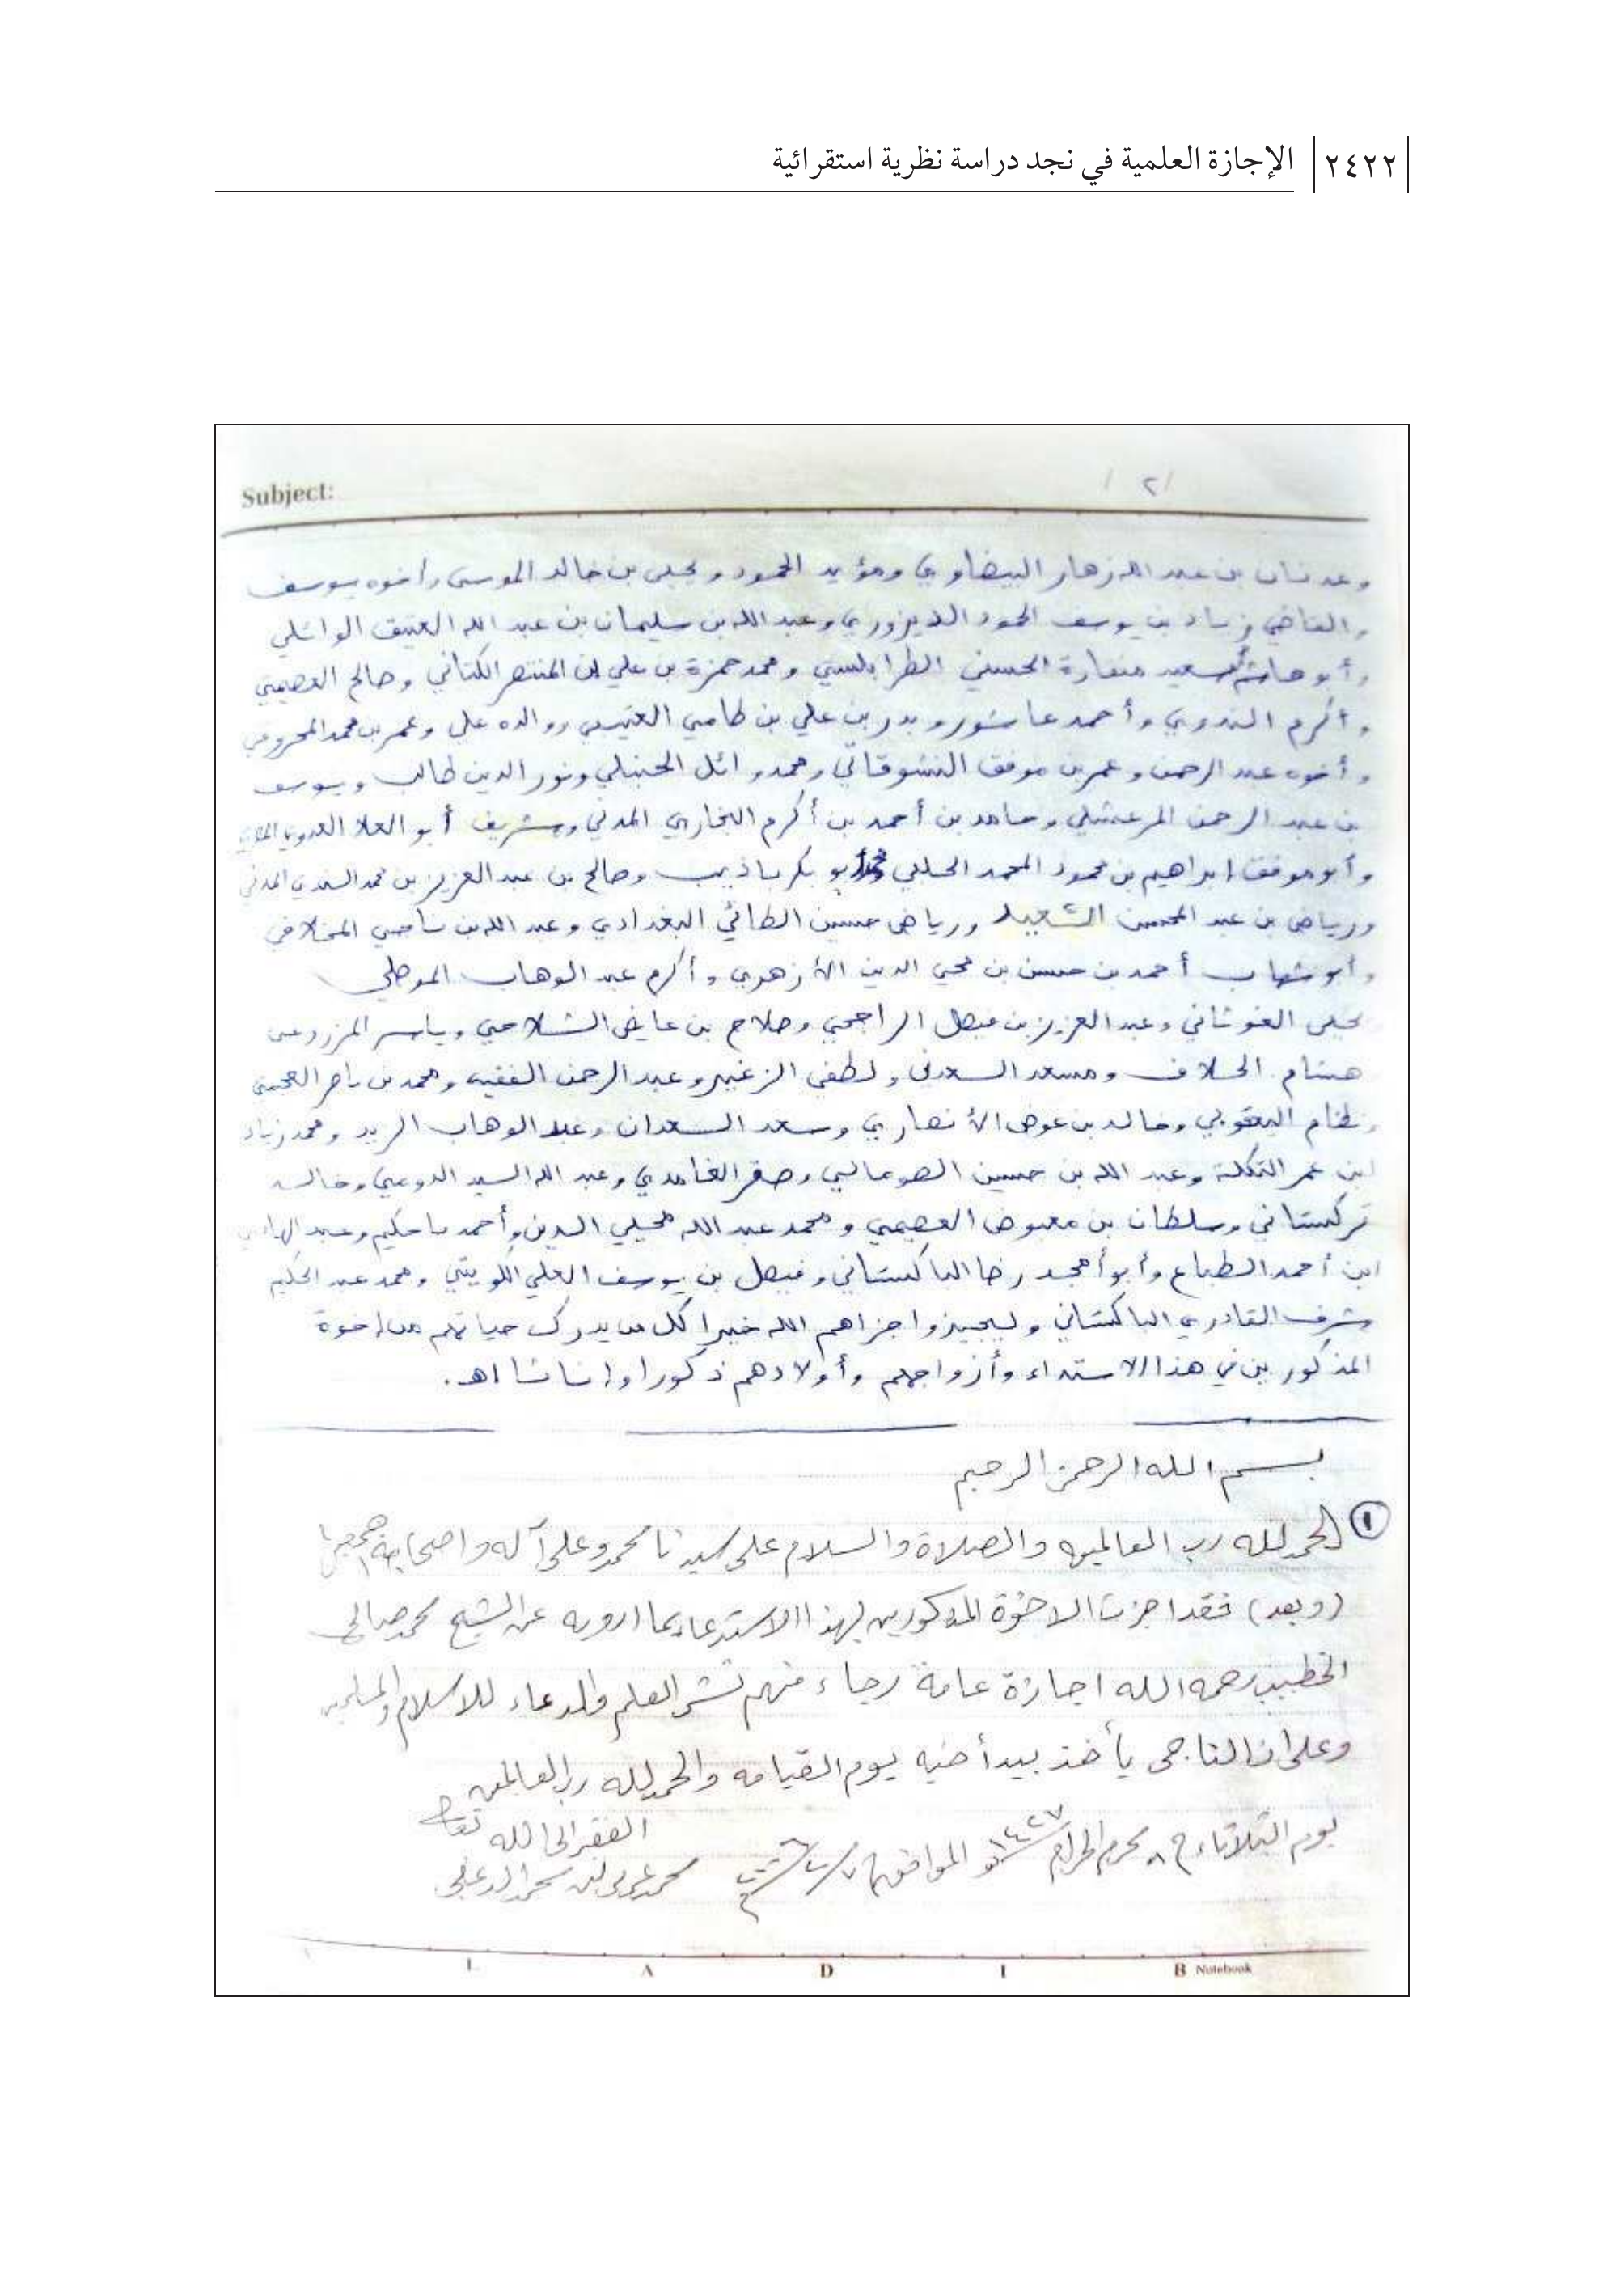 ٢٤٢٢ الإجازة العلمية في نجد دراسة نظرية استقرائية
Subject:
/٢/
وعدنان بن عبد الله زهار البيضاوي ومؤيد الحمود ويحيى بن خالد الموسى وأخوه يوسف
والقاضي زياد بن يوسف الحمود الديزوري وعبد الله بن سليمان بن عبد الله العتيق الوائلي
وأبو هاشم سعيد منقارة الحسيني الطرابلسي ومحمد حمزة بن علي بن المنتصر الكتاني وصالح العصيمي
وأكرم الندوي وأحمد عاشور وبدر بن علي بن طامي العتيبي ووالده علي وعمر بن محمد
وأخوه عبد الرحمن وعمر بن موفق النشوقاتي ومحمد وائل الحنبلي ونور الدين طالب ويوسف
بن عبد الرحمن المرعشلي وحامد بن أحمد بن أكرم البخاري المدني وشريف أبو العلا العدوي
وأبو موفق إبراهيم بن محمود المحمد الحلبي أبو بكر باذيب وصالح بن عبد العزيز بن محمد السندي المدني
ورياض بن عبد المحسن السعيد ورياض حسين الطائي البغدادي وعبد الله بن ناجي المخلافي
وأبو شهاب أحمد بن حسن بن محيي الدين الأزهري وأكرم عبد الوهاب الموصلي
يحيى الغوثاني وعبد العزيز بن فيصل الراجحي وصلاح بن عايض الشلاحي وياسر المزروعي
هشام الحلاف ومسعد السعدني ولطفي الزغير وعبد الرحمن الفقيه ومحمد بن ناصر العجمي
ونظام اليعقوبي وخالد بن عوض الأنصاري وسعد السعدان وعبد الوهاب الزيد ومحمد زياد
ابن عمر التكلة وعبد الله بن حسين الصومالي وصقر الغامدي وعبد الله السيد الدوعي وخالد
تركستاني وسلطان بن معيوض العصيمي ومحمد عبد الله محيي الدين وأحمد باحكيم وعبد
ابن أحمد الطباع وأبو أمجد رضا الباكستاني وفيصل بن يوسف العلي الكويتي ومحمد عبد الحكيم
شرف القادري الباكستاني وليجيزوا جزاهم الله خيرا كل من يدرك حياتهم من إخوة
المذكورين في هذا الاستدعاء وأزواجهم وأولادهم ذكورا وإناثا اهـ.
بسم الله الرحمن الرحيم
١ الحمد لله رب العالمين والصلاة والسلام على سيدنا محمد وعلى آله واصحابه أجمعين
(وبعد) فقد اجزت الاخوة المذكورين بهذا الاستدعاء بما ارويه عن الشيخ محمد صالح
الخطيب رحمه الله اجازة عامة رجاء منهم نشر العلم والدعاء للاسلام والمسلمين
وعلى ان الناجي يأخذ بيد أخيه يوم القيامة والحمد لله رب العالمين
يوم الثلاثاء ٨ محرم الحرام ١٤٢٧هـ الموافق ٧/٢/٢٠٠٦م
الفقير الى الله تعالى
محمد
L A D I B Notebook